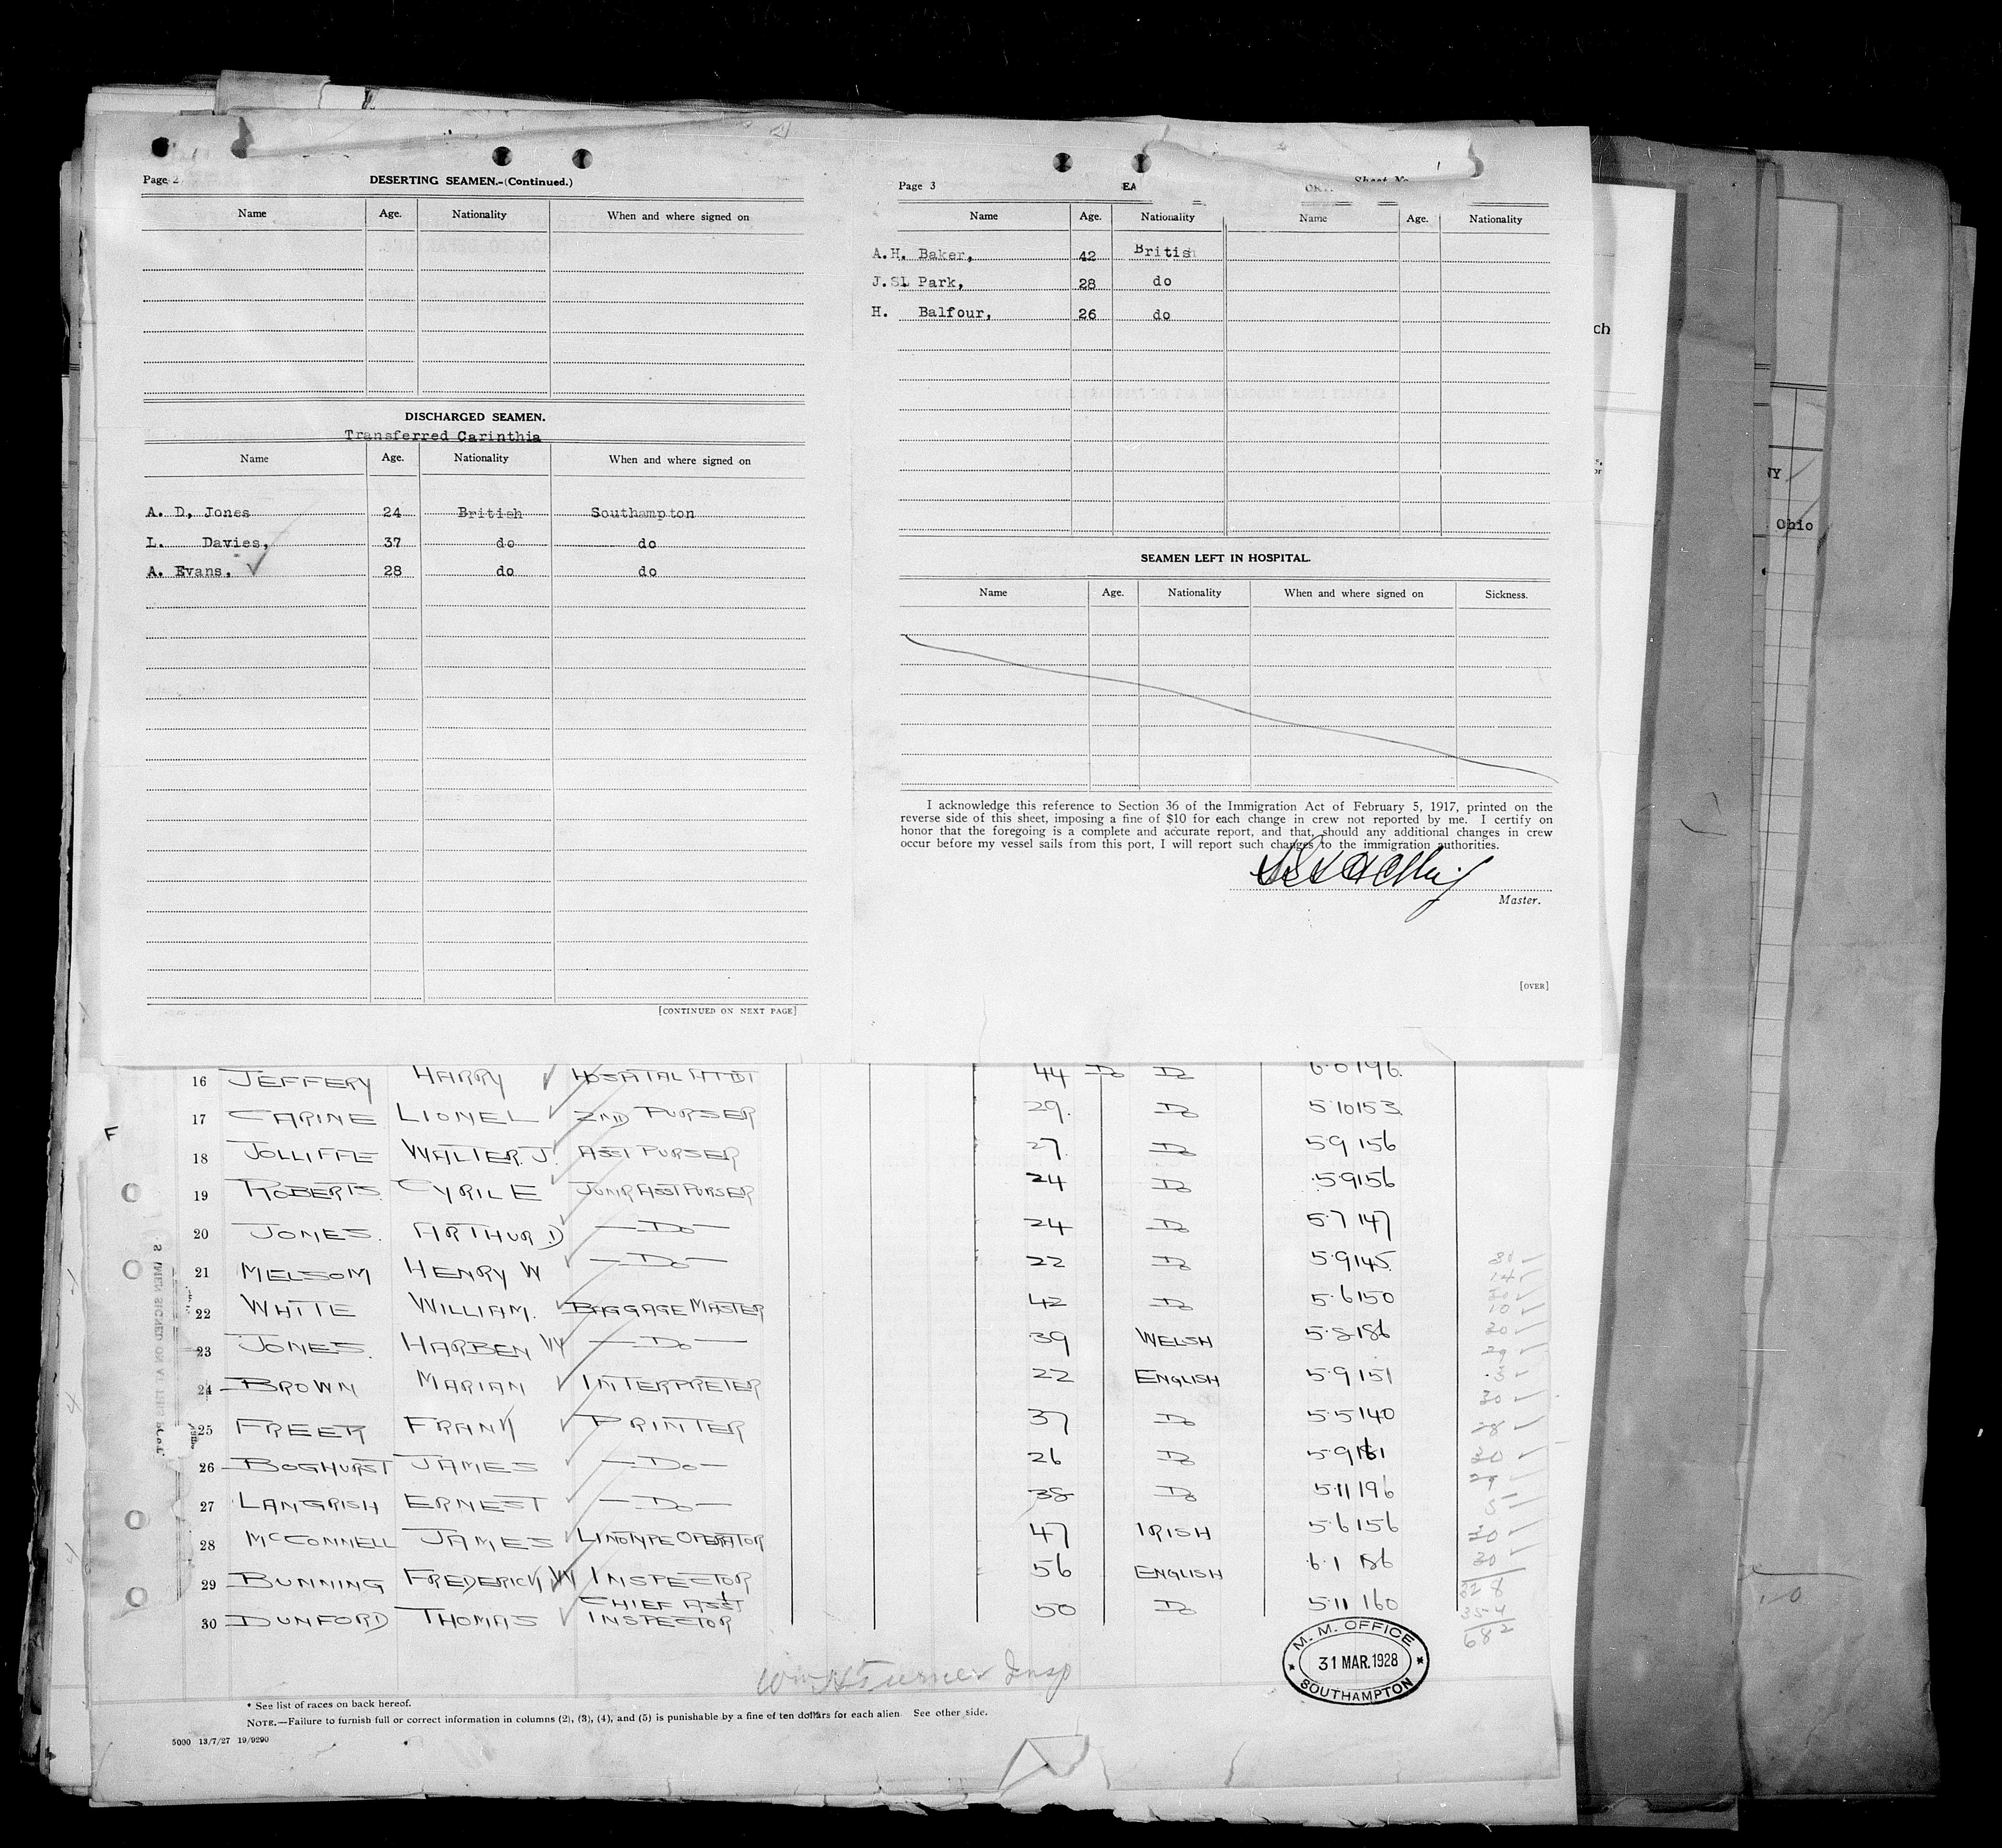 Page 2
DESERTING SEAMEN.-(Continued.)
Name Age. Nationality When and where signed on
DISCHARGED SEAMEN.
Transferred Carinthia
Name Age. Nationality When and where signed on
A. D, Jones 24 British Southampton
L. Davies, 37 do do
A. Evans, ✓ 28 do do
[CONTINUED ON NEXT PAGE]
Page 3 EA Sheet No
Name Age. Nationality Name Age. Nationality
A.H. Baker, 42 British
J.SL Park, 28 do
H. Balfour, 26 do
SEAMEN LEFT IN HOSPITAL.
Name Age. Nationality When and where signed on Sickness.
I acknowledge this reference to Section 36 of the Immigration Act of February 5, 1917, printed on the
reverse side of this sheet, imposing a fine of $10 for each change in crew not reported by me. I certify on
honor that the foregoing is a complete and accurate report, and that, should any additional changes in crew
occur before my vessel sails from this port, I will report such changes to the immigration authorities.
Master.
[OVER]
ch
NY
Ohio
F
16 JEFFERY HARRY ✓ HOSPITAL ATTDT 44 Do Do 6.0 196
17 CARINE LIONEL ✓ 2ND PURSER 29. Do 5.10 153
18 JOLLIFFE WALTER. J. ASST PURSER 27. Do 5.9 156
19 ROBERTS. CYRIL E ✓ JUNR ASST PURSER 24 Do 5.9 156
20 JONES. ARTHUR D — Do — 24 Do 5.7 147
21 MELSOM HENRY W ✓ — Do — 22 Do 5.9 145
22 WHITE WILLIAM. ✓ BAGGAGE MASTER 42 Do 5.6 150
23 JONES. HARBEN W — Do — 39 WELSH 5.8 186
24 BROWN MARIAN ✓ INTERPRETER 22 ENGLISH 5.9 151
25 FREER FRANK ✓ PRINTER 37 Do 5.5 140
26 BOGHURST JAMES ✓ — Do — 26 Do 5.9 161
27 LANGRISH ERNEST ✓ — Do — 38 Do 5.11 196
28 McCONNELL JAMES ✓ LINOTYPE OPERATOR 47 IRISH 5.6 156
29 BUNNING FREDERICK W INSPECTOR 56 ENGLISH 6.1 186
30 DUNFORD THOMAS ✓ CHIEF ASST INSPECTOR 50 Do 5.11 160
328
354
682
M. M. OFFICE
31 MAR. 1928
SOUTHAMPTON
Wm H Turner Insp
* See list of races on back hereof.
NOTE.—Failure to furnish full or correct information in columns (2), (3), (4), and (5) is punishable by a fine of ten dollars for each alien See other side.
5000 13/7/27 19/9290